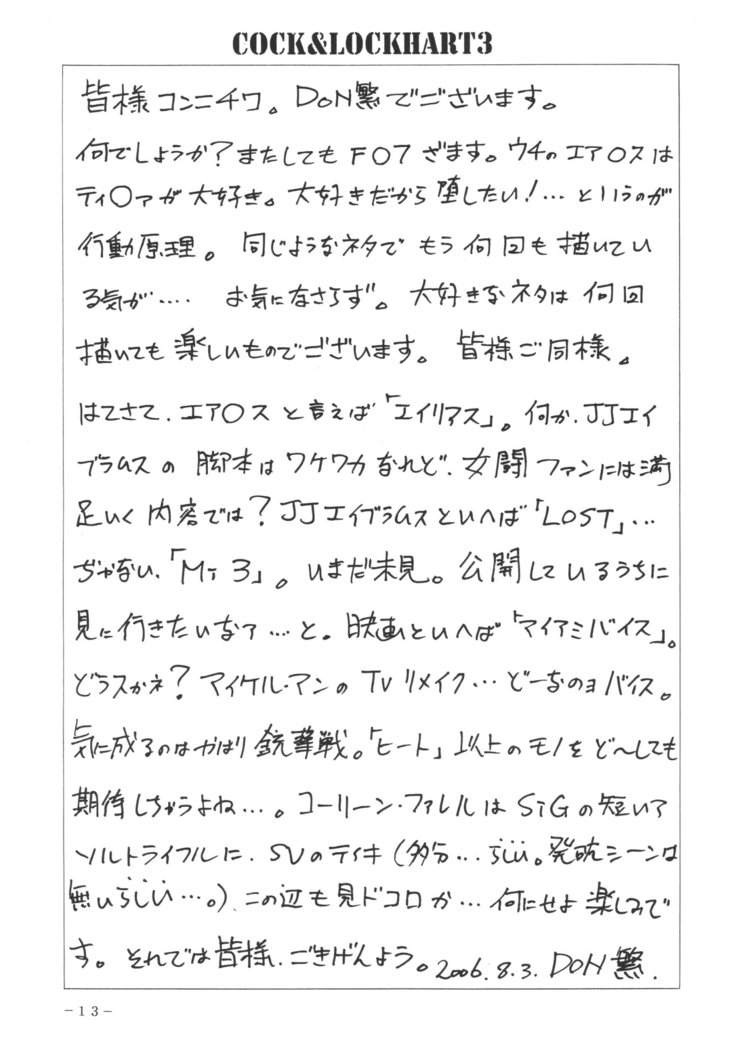 COCK&LOCKHART3
皆様コンニチワ。DoN繁でございます。
何でしょうか?またしてもFO7ざます。ウチのエア○スは
ティ○ァが大好き。大好きだから堕したい!…というのが
行動原理。同じようなネタでもう何回も描いてい
る気が…. お気になさらず。大好きなネタは何回
描いても楽しいものでございます。皆様ご同様。
はてさて、エア○スと言えば「エイリアス」。何か、JJエイ
ブラムスの脚本はワケワカなれど、女闘ファンには満
足いく内容では?JJエイブラムスといへば「LOST」…
ぢゃない、「Mi3」。いまだ未見。公開しているうちに
見に行きたいなァ…と。映画といへば「マイアミバイス」。
どうスかネ?マイケル・マンのTVリメイク…どーなのョバイス。
気に成るのはやはり銃撃戦。「ヒート」以上のモノをど〜しても
期待しちゃうよね…。コーリーン・ファレルはSiGの短いア
ソルトライフルに、SVのティキ(多分…らしい。発砲シーンは
無いらしい…。)、この辺も見ドコロか…何にせよ楽しみで
す。それでは皆様、ごきげんよう。2006.8.3. DoN繁.
-13-